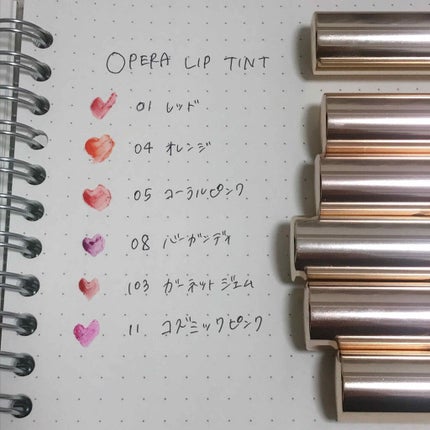 OPERA LIP TINT
01 レッド
04 オレンジ
05 コーラルピンク
08 バーガンディ
103 ガーネットジェム
11 コズミックピンク